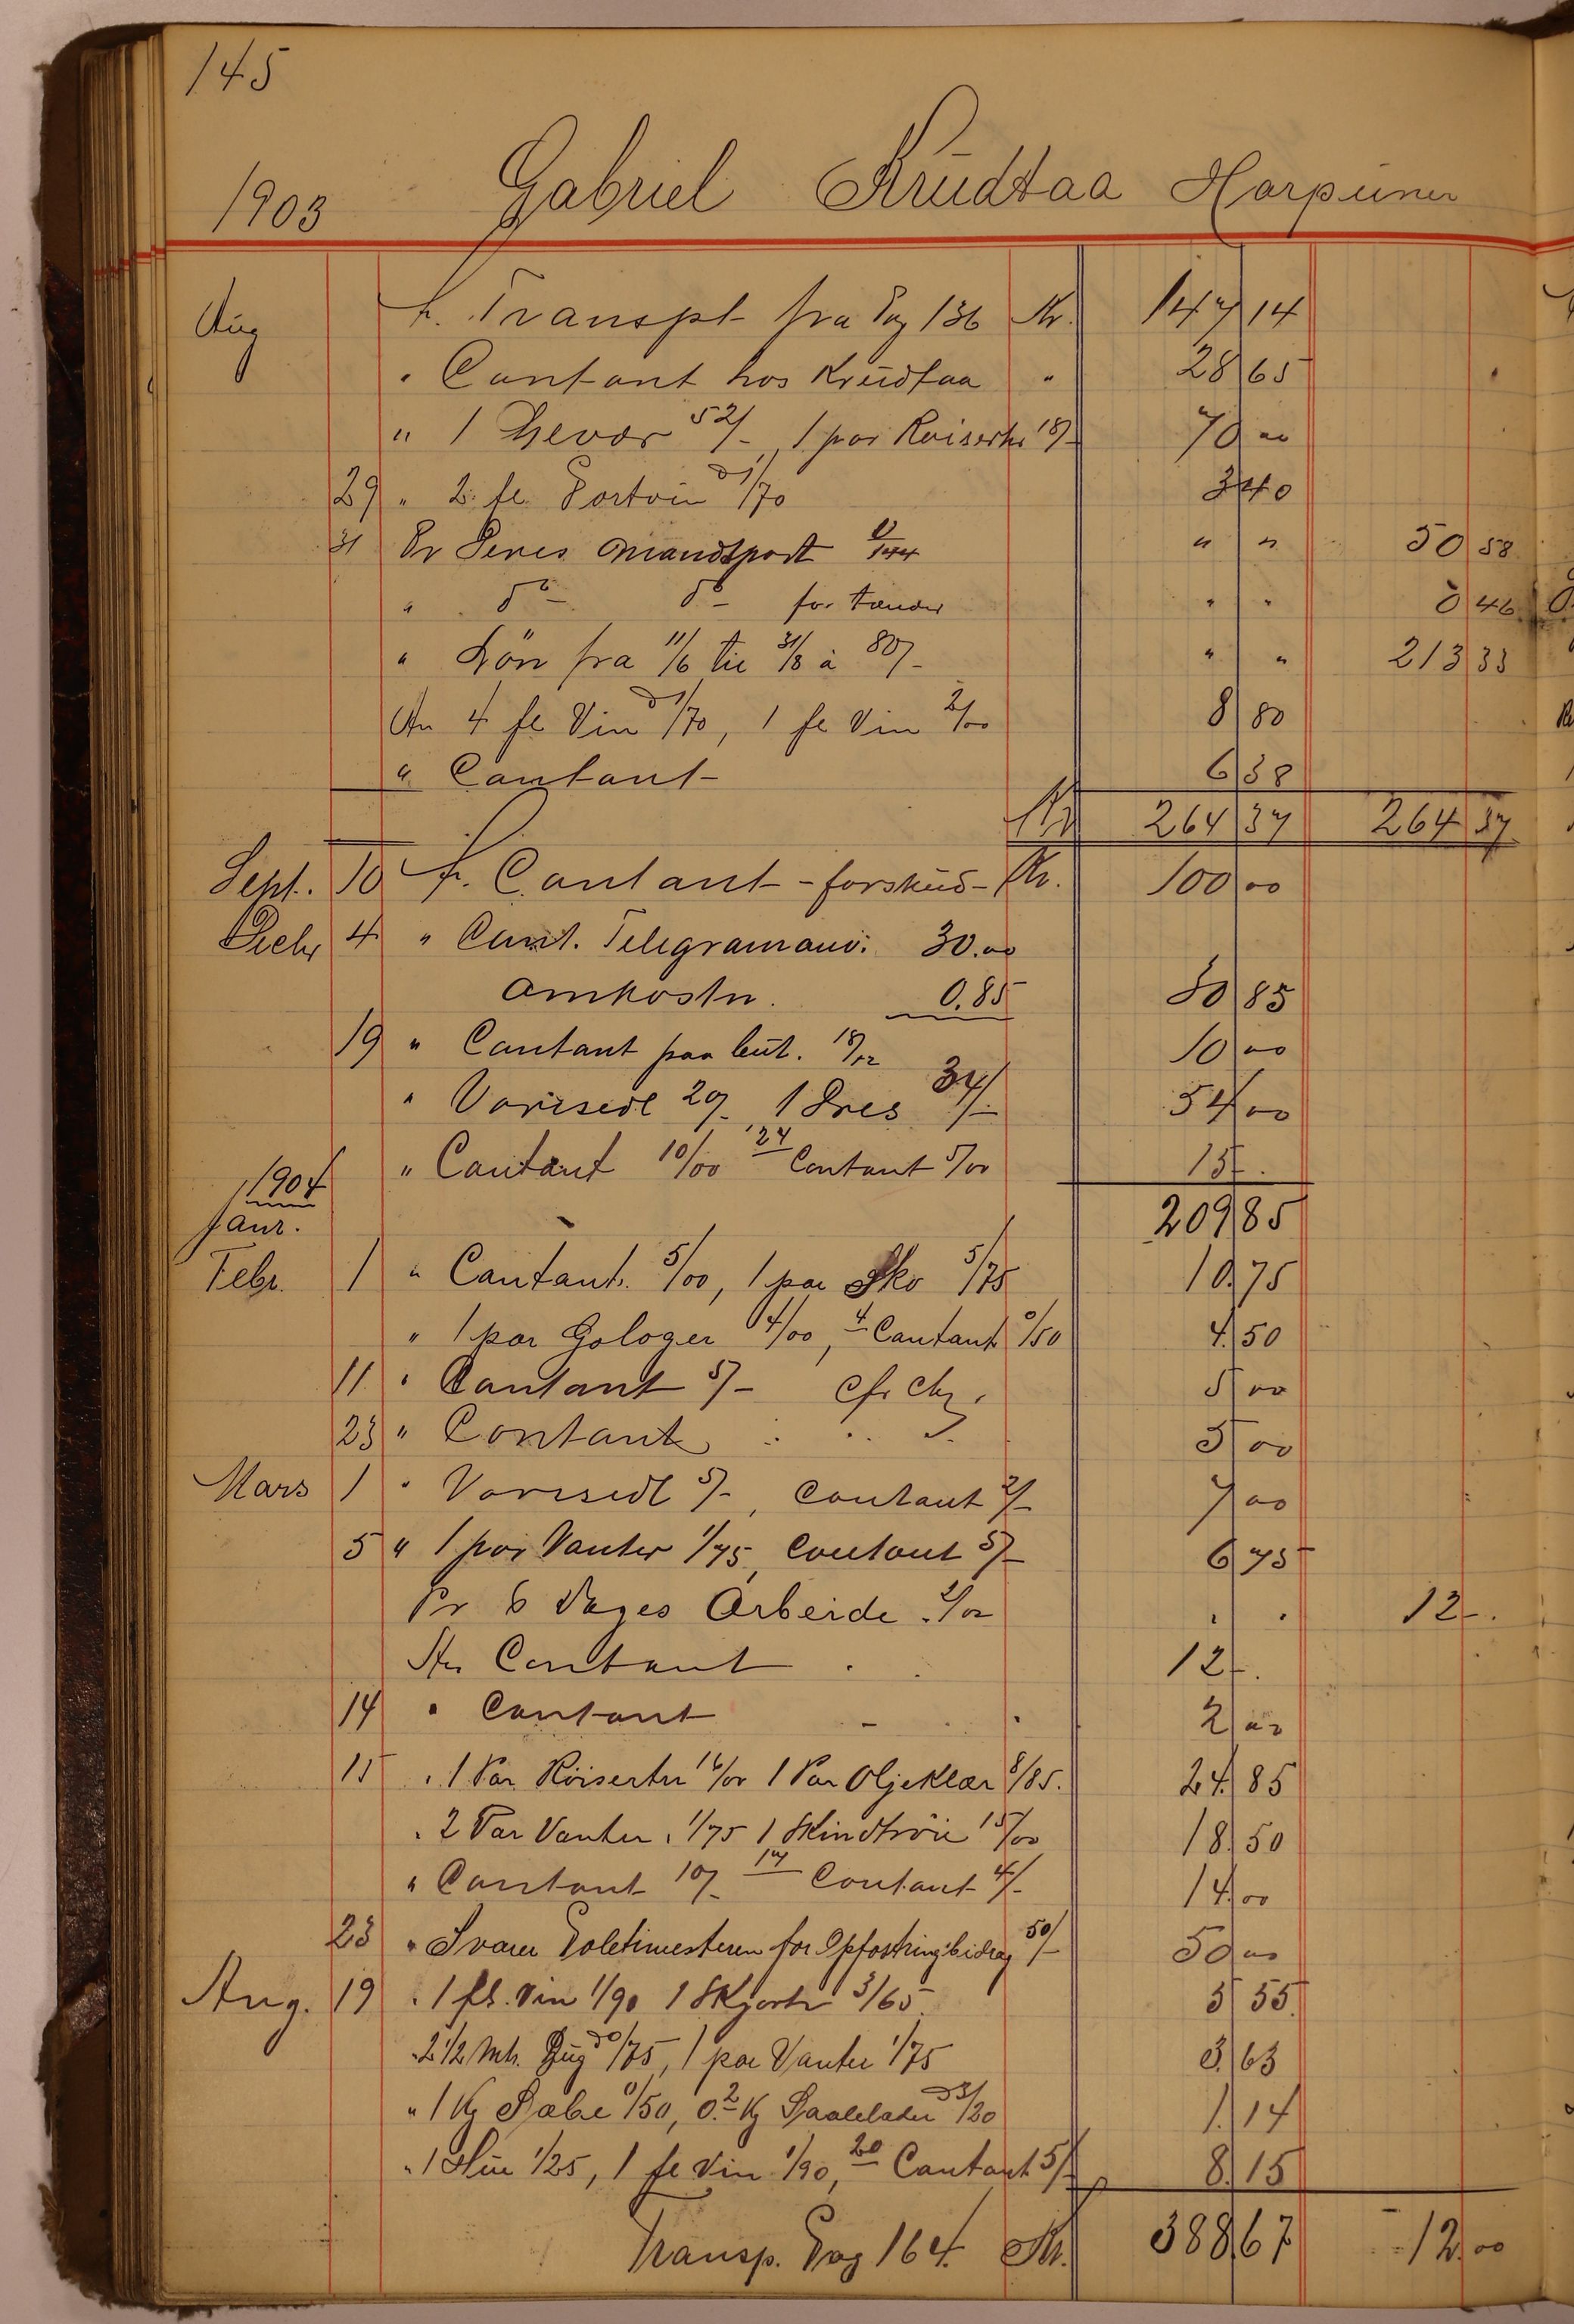 145
1903 Gabriel Krüdtaa Harpuner
Aug An Transpt fra Pag 136 Kr. 147 14
" Contant hos Krüdtaa " 28 65
" 1 Gevær 52/- 1 par Röisertr 18/- 70 00
29 " 2 fl Portvin à 1/70 3 40
31 Pr Deres Mandspart 50 58
" do do for tænder " " 0 46
" Lön fra 11/6 til 31/8 à 80/- " " 213 33
An 4 fl Vin à 1/70, 1 fl Vin 2/00 8 80
" Contant 6 38
Kr 264 37 264 37
Sept. 10 An Contant - forskud - Kr. 100 00
Decbr 4 " Cont. Telegramanv: 30.00
Omkostn. 0.85 30 85
19 " Contant paa 18/12 10 00
" Varesedl 20/- 1 Dres 34/- 54 00
" Contant 10/00 24 Contant 5/00 15 -
1904
Janr. 209 85
Febr. 1 " Contant 5/00, 1 par Sko 5/75 10 75
" 1 par Galoger 4/00, 4 Contant 0/50 4.50
11 " Contant 5/- 5 00
23 " Contant 5 00
Mars 1 " Varesedl 5/-, Contant 2/- 7 00
5 " 1 par Vanter 1/75, Contant 5/- 6 75
Pr 6 Dages Arbeide 2/00 12 -.
An Contant 12 -.
14 " Contant 2 00
15 " 1 Par Röisertr 16/00 1 Par Oljeklær 8/85. 24.85
" 2 Par Vanter " 1/75 1 Skindtröie 15/00 18.50
" Contant 10/- 17 Contant 4/- 14.00
23 " Svaren Politimesteren for Opfostringsbidrag 50/- 50 00
Aug. 19 " 1 fl. Vin 1/90 1 Skjorte 3/65 5 55.
" 2 1/2 Mtr. à 0/75, 1 par Vanter 1/75 3.63
" 1 Kg Sæbe 0/50, 0.2 Kg Saalelæder à 3/20 1.14
" 1 Hue 1/25, 1 fl Vin 1/90, 20 Contant 5/- 8.15
Transp. Pag 164. Kr. 388.67 12.00